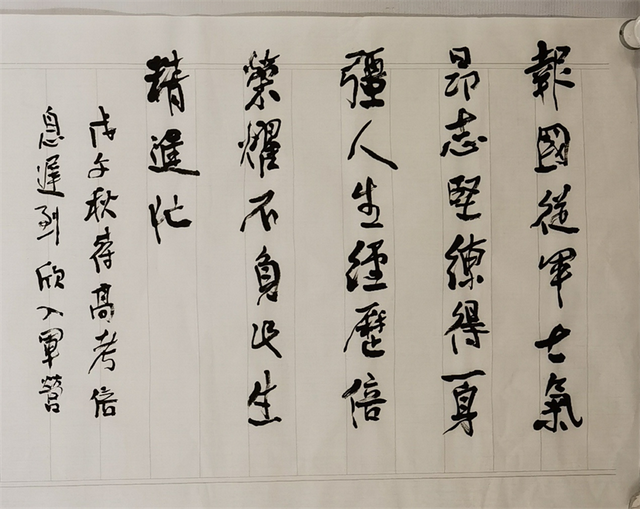 報國從軍士氣
昂志堅練得一身
彊人生經歷倍
榮耀不負此生
精進忙
戊午秋待高考信
息遲到欣入軍營